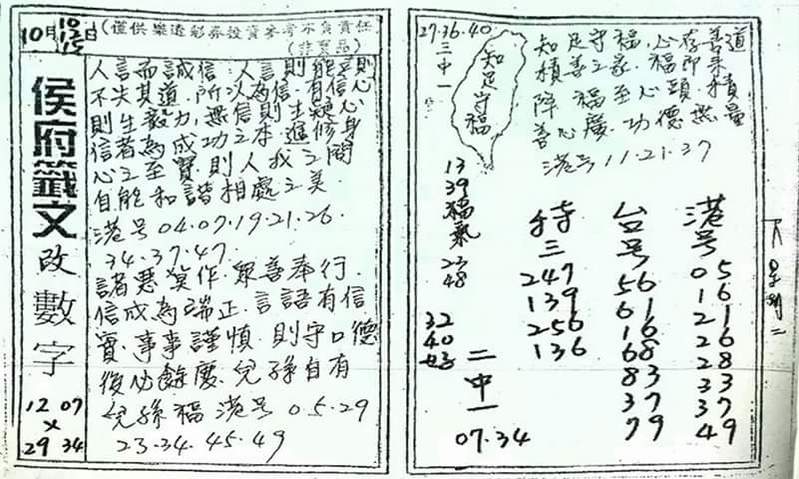 10月10 12 15日(僅供樂透彩券投資參考不負責任
(非賣品)
侯府籤文
改數字
12 07
×
29 34
人言而誠信.人言則能立則
不失其道.所以為信.有信心
則生毅力,無信則生疑心
信者為成功之本.進修身
心之至寶.則人我之間
自能和諧相處之美
港号04.07.19.21.26.
34.37.47.
諸惡莫作.眾善奉行.
信成為端正.言語有信
實.事事謹慎.則守口德
後必餘慶.兒孫自有
兒孫福 港号 0.5.29
23.34.45.49
27.36.40
三中一
知足守福
知足守福,心存善道
積善之家.福即來
降福至心頭.積
善心廣.功德無量
港号11.21.37
13
39
福氣
23
48
32
40
二中一
07.34
特三
247
139
256
136
台号
56
61
16
68
83
37
79
港号
05
16
21
26
28
33
37
49